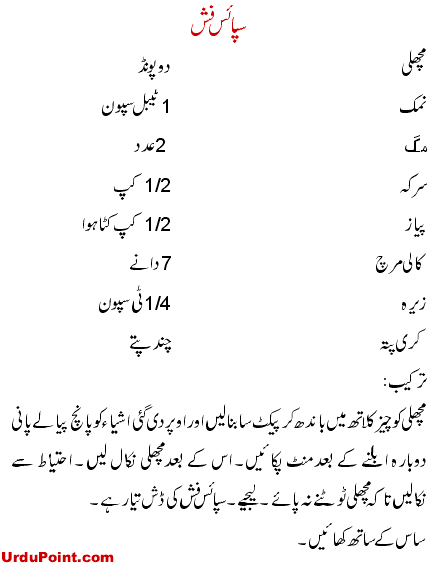 سپائس فش
مچھلی دو پونڈ
نمک 1 ٹیبل سپون
مگ 2 عدد
سرکہ 1/2 کپ
پیاز 1/2 کپ کٹا ہوا
کالی مرچ 7 دانے
زیرہ 1/4 ٹی سپون
کری پتہ چند پتے
ترکیب:
مچھلی کو چیز کلاتھ میں باندھ کر پیکٹ سا بنا لیں اور اوپر دی گئی اشیاء کو پانچ پیالے پانی
دوبارہ ابلنے کے بعد منٹ پکائیں۔ اس کے بعد مچھلی نکال لیں۔ احتیاط سے
نکالیں تا کہ مچھلی ٹوٹنے نہ پائے۔ لیجیے۔ سپائس فش کی ڈش تیار ہے۔
ساس کے ساتھ کھائیں۔
UrduPoint.com